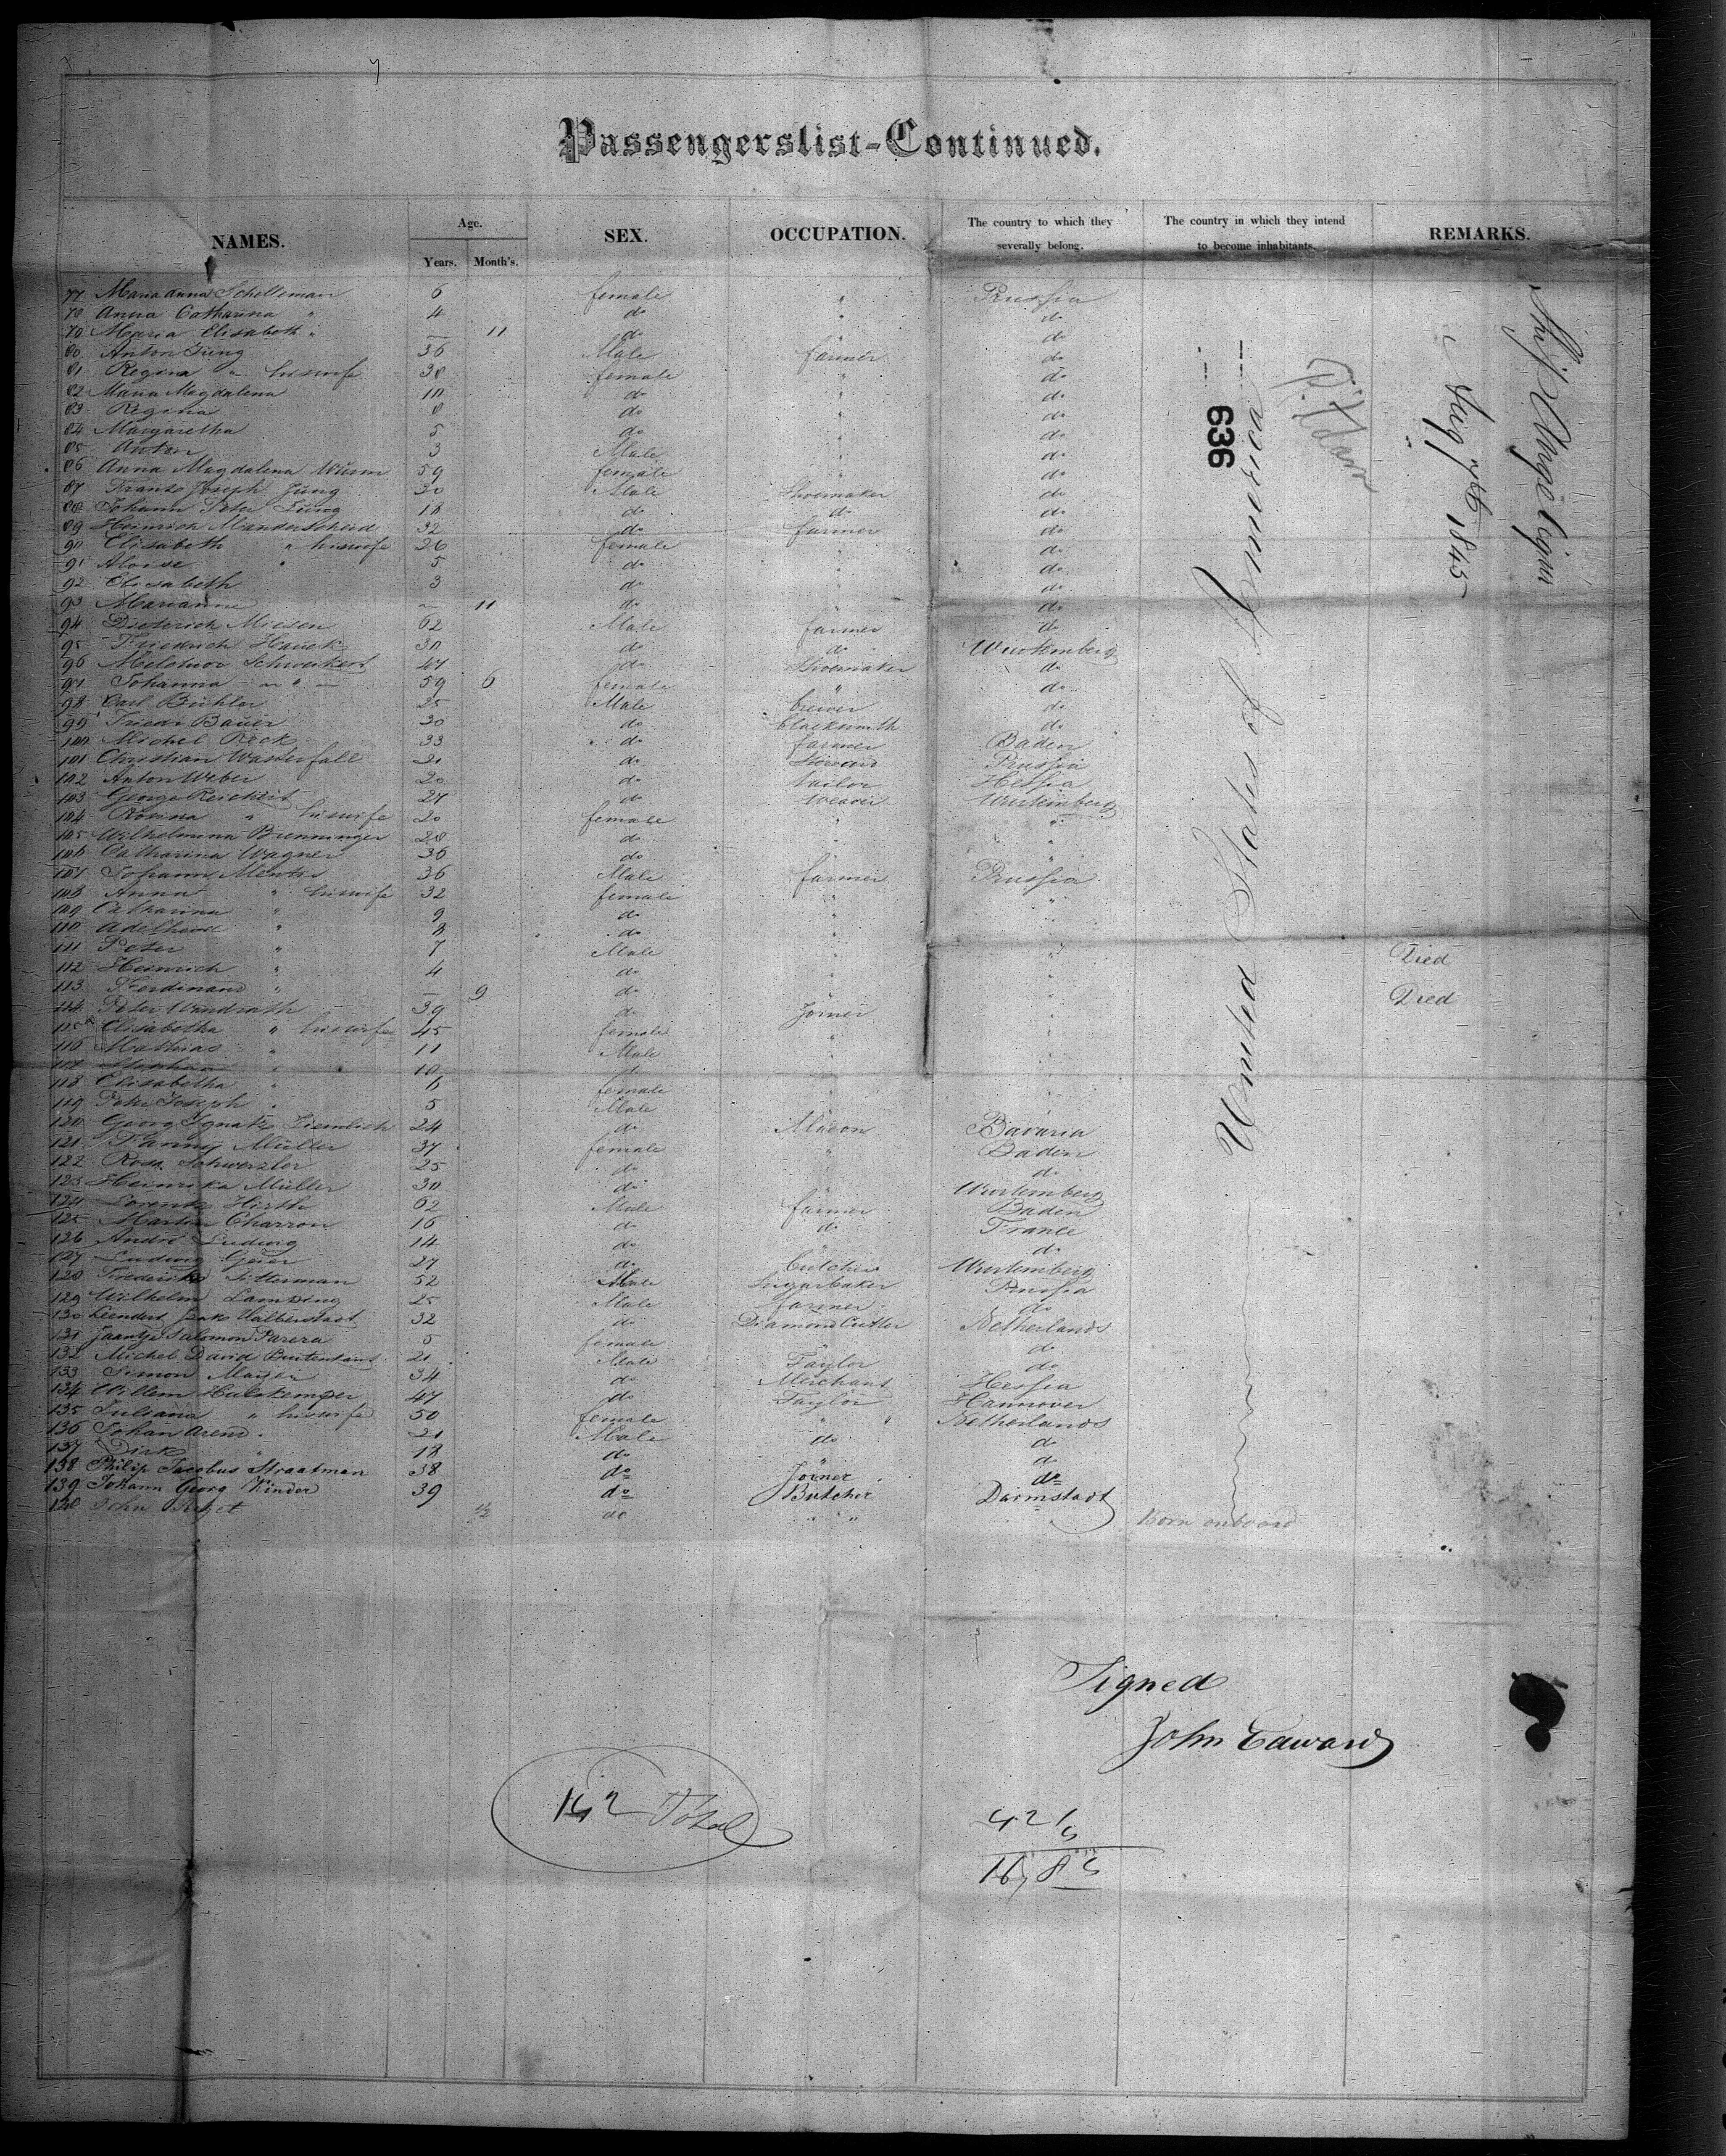 Passengerslist-Continued.
NAMES. Age. SEX. OCCUPATION. The country to which they severally belong. The country in which they intend to become inhabitants. REMARKS.
Years. Month's.
77 Maria Anna Schelleman 6 female " Prussia
78 Anna Catharina " 4 do " do
79 Maria Elisabeth " — 11 do " do
80 Anton Jung 36 Male farmer do
81 Regina " his wife 38 female " do
82 Maria Magdalena 10 do " do
83 Regina 8 do " do
84 Margaretha 5 do " do
85 Anton 3 Male " do
86 Anna Magdalena Wurm 59 female " do
87 Frantz Joseph Jüng 30 Male Shoemaker do
88 Johann Peter Jüng 18 do do do
89 Heinrich Manderscheid 32 do farmer do
90 Elisabeth " his wife 26 female " do
91 Aloise " 5 do " do
92 Elisabeth 3 do " do
93 Marianne — 11 do " do
94 Dieterich Miesen 62 Male farmer do
95 Friedrich Hauck 30 do do Wurtemberg
96 Melchior Schweikert 47 do Shoemaker do
97 Johanna — " — 59 6 female " do
98 Carl Bühler 25 Male brewer do
99 Friedr Bauer 30 do blacksmith do
100 Michel Reck 33 do farmer Baden
101 Christian Wasserfall 21 do Prussia
102 Anton Weber 20 do tailor Hessia
103 George Reickert 27 do weaver Wurtemberg
104 Rosina " his wife 20 female " "
105 Wilhelmina Brenninger 28 do " "
106 Catharina Wagner 36 do " "
107 Johann Mentis 36 Male farmer Prussia
108 Anna " his wife 32 female " "
109 Catharina " 9 do " "
110 Adelheid " 8 do " "
111 Peter " 7 Male " " Died
112 Heinrich " 4 do " "
113 Ferdinand " — 9 do " " Died
114 Peter Wandrath 39 do Joiner "
115 Elisabetha " his wife 45 female " "
116 Mathias " 11 Male " "
117 Stephan " 10 " "
118 Elisabetha " 6 female " "
119 Peter Joseph " 5 Male " "
120 Georg Ignatz Ziemlich 24 do Mason Bavaria
121 Fanny Müller 37 female " Baden
122 Rosa Schwerzler 25 do do
123 Heinrika Müller 30 do Wurtemberg
124 Lorentz Hirth 62 Male farmer Baden
125 Martin Charron 16 do do France
126 André Ludwig 14 do do
127 Ludwig Geier 27 do butcher Wurtemberg
128 Frederick Sitterman 52 Male Sugarbaker Prussia
129 Wilhelm Lamping 25 Male farmer do
130 Leendert Izak Halberstadt 32 do Diamond Cutter Netherlands
131 Jaantje Salomon Parera 5 female " do
132 Michel David Buitenhant 21 Male Taylor do
133 Simon Mayer 34 do Merchant Hessia
134 Willem Hulskemper 47 do Taylor Hannover
135 Juliana " his wife 50 female " " Netherlands
136 Johan Arend 21 Male do do
137 Dirk " 18 do " do
138 Philip Jacobus Straatman 38 do Joiner do
139 Johann Georg Kinder 39 do Butcher Darmstadt
140 John 1/2 do " " Born onboard
United States of America
636
P. Adam
Aug 1845
Ship
Signed
John Edwards
142 Total